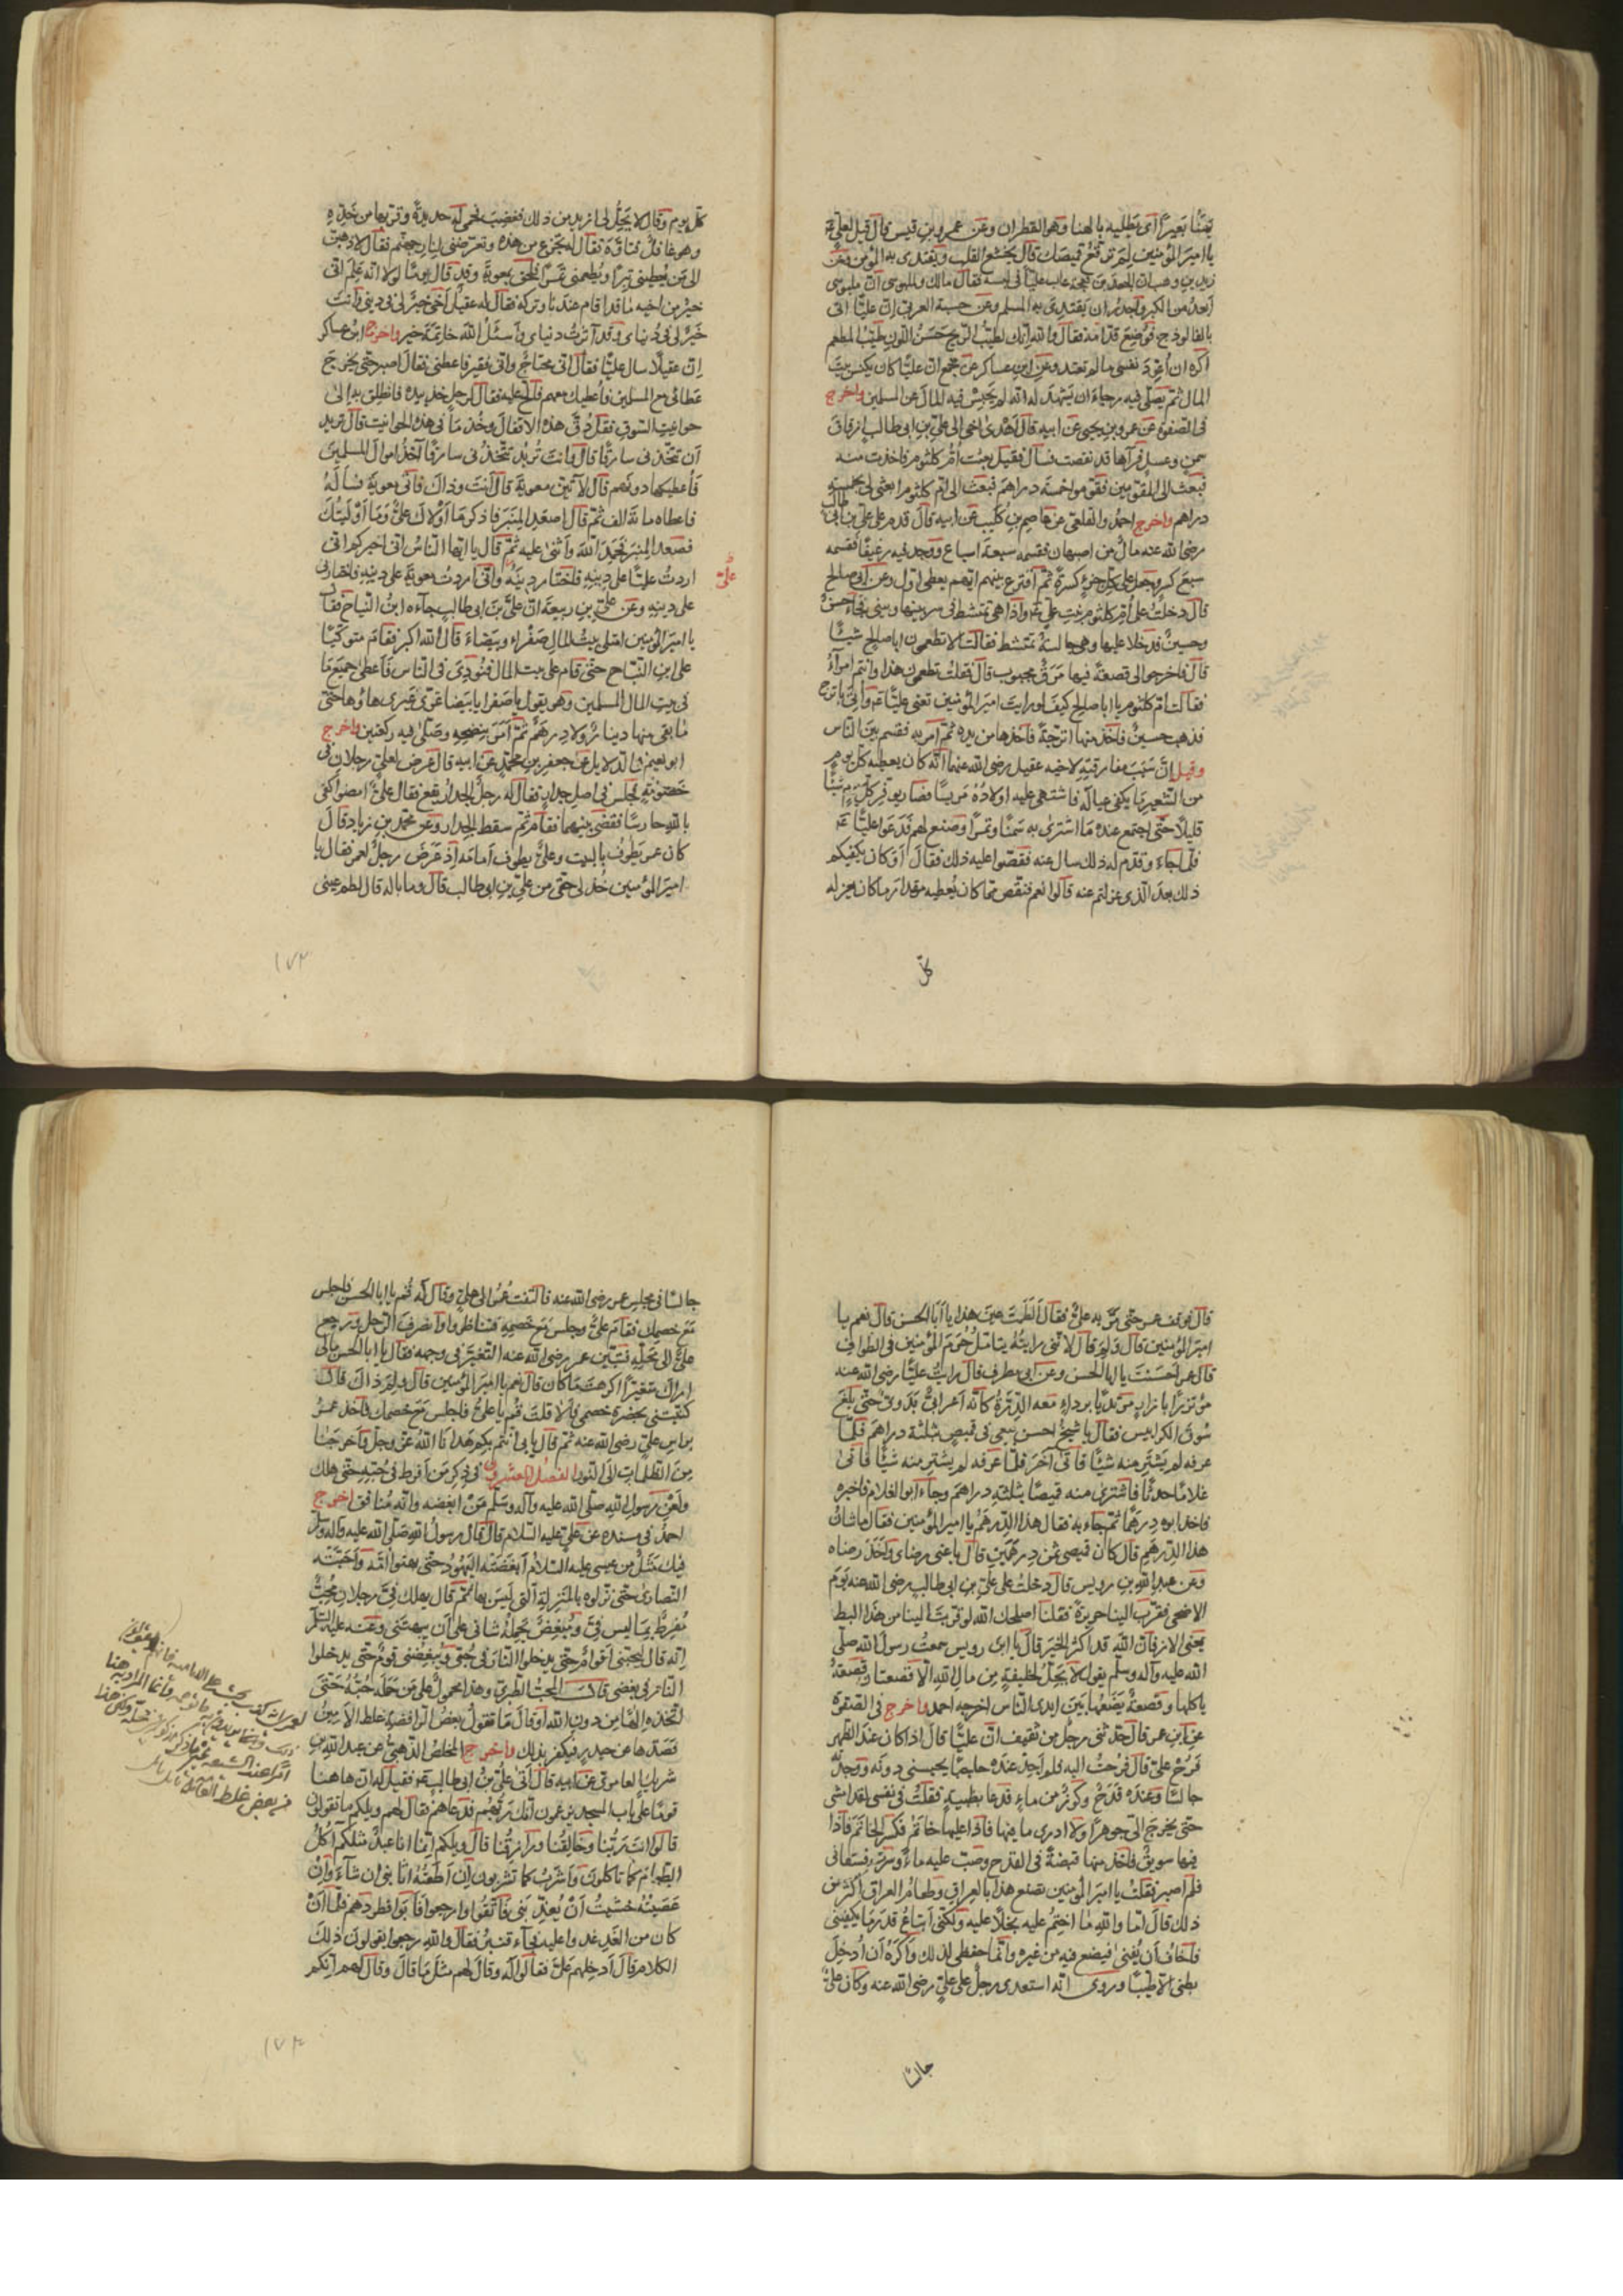 يهنأ بعيرا اى يطليه بالهنا وهو القطران وعن عمرو بن قيس قال قيل لعلى
يا امير المؤمنين لم ترقع قميصك قال يخشع القلب ويقتدى به المؤمن وعن
زيد بن وهب ان الجعد بن بعجة عاب عليا فى لبسه فقال مالك وللبوسى ان ملبوسى
ابعد من الكبر واجدر ان يقتدى به المسلم وعن حبة العرنى ان عليا اتى
بالفالوذج فوضع قدامه فقال والله انك لطيب الريح حسن اللون طيب المطعم
اكره ان اعود نفسى ما لم تعتد وعن ابن عساكر عن مجمع ان عليا كان يكنس بيت
المال ثم يصلى فيه رجاء ان يشهد له انه لم يحبس فيه المال عن المسلمين واخرج
فى الصفوة عن عمرو بن يحيى عن ابيه قال اهدى الى على بن ابى طالب ازقاق
سمن وعسل فرآها قد نقصت فسأل فقيل بعثت ام كلثوم فاخذت منه
فبعث الى المقومين فقوموا خمسة دراهم فبعث الى ام كلثوم ابعثى لى بخمسة
دراهم واخرج احمد والقلعى عن عاصم بن كليب عن ابيه قال قدم على على بن ابى طالب
رضى الله عنه مال من اصبهان فقسمه سبعة اسباع ووجد فيه رغيفا فقسمه
سبع كسر وجعل على كل جزء كسرة ثم اقرع بينهم ايهم يعطى اول وعن ابى صالح
قال دخلت على ام كلثوم بنت على واذا هى تمتشط فى ستر بينها وبينى فجاء حسن
وحسين فدخلا عليها وهى جالسة تمتشط فقالت الا تطعمون ابا صالح شيئا
قال فاخرجوا الى قصعة فيها مرق بحبوب قال فقلت تطعمون هذا وانتم امراء
فقالت ام كلثوم يا ابا صالح كيف لو رايت امير المؤمنين تعنى عليا واتى باترج
فذهب حسين فاخذ منها اترجة فاخذها من يده ثم امر به فقسم بين الناس
وقيل ان سبب مفارقته لاخيه عقيل رضى الله عنهما انه كان يعطيه كل يوم
من الشعير ما يكفى عياله فاشتهى عليه اولاده مريسا فصار يوفر كل يوم شيئا
قليلا حتى اجتمع عنده ما اشترى به سمنا وتمرا وصنع لهم فدعوا عليا
فلما جاء وقدم له ذلك سال عنه فقصوا عليه ذلك فقال او كان يكفيكم
ذلك بعد الذى عزلتم عنه قالوا نعم فنقص مما كان يعطيه مقدار ما كان يعزله
كل
كل يوم وقال لا يحل لى ازيد من ذلك فغضب فحمى له حديدة وقربها من خده
وهو غافل فتاوه فقال له تجزع من هذه وتعرضنى لنار جهنم فقال لاذهبن
الى من يعطينى تبرا ويطعمنى تمرا فلحق بمعوية وقد قال يوما لولا انه علم انى
خير من اخيه ما قدا قام عندنا وتركه فقال له عقيل اخى خير لى فى دينى وانت
خير لى فى دنياى وقد آثرت دنياى واسئل الله خاتمة خير واخرج ابن عساكر
ان عقيلا سال عليا فقال انى محتاج وانى فقير فاعطنى فقال اصبر حتى يخرج
عطائى مع المسلمين فاعطيك معهم فالح عليه فقال لرجل خذ بيده فانطلق به الى
حوانيت السوق فقل دق هذه الاقفال وخذ ما فى هذه الحوانيت قال تريد
ان تتخذنى سارقا قال وانت تريد تتخذنى سارقا آخذ اموال المسلمين
فاعطيكها دونهم قال لاتين معوية قال انت وذاك فاتى معوية فساله
فاعطاه مائة الف ثم قال اصعد المنبر فاذكر ما اولاك على وما اوليتك
فصعد المنبر فحمد الله واثنى عليه ثم قال يا ايها الناس انى اخبركم انى
اردت عليا على دينه فاختار دينه وانى اردت معوية على دينه فاختارنى
على
على دينه وعن على بن ربيعة ان على بن ابى طالب جاءه ابن التياح فقال
يا امير المؤمنين امتلى بيت المال صفراء وبيضاء قال الله اكبر فقام متوكيا
على ابن التياح حتى قام على بيت المال فنودى فى الناس فاعطى جميع ما
فى بيت المال المسلمين وهو يقول يا صفرا يا بيضا غرى غيرى ها وها حتى
ما بقى منها دينار ولا درهم ثم امر بنضحه وصلى فيه ركعتين واخرج
ابو نعيم فى الدلايل عن جعفر بن محمد عن ابيه قال عرض لعلى رجلان فى
خصومة فجلس فى اصل جدار فقال له رجل الجدار يقع فقال على امض كفى
بالله حارسا فقضى بينهما فقام ثم سقط الجدار وعن محمد بن زياد قال
كان عمر يطوف بالبيت وعلى يطوف امامه اذ عرض رجل لعمر فقال يا
امير المؤمنين خذ لى حقى من على بن ابى طالب قال وما باله قال لطم عينى
١٧٣
قال فوقف عمر حتى مر به على فقال الطمت عين هذا يا ابا الحسن قال نعم يا
امير المؤمنين قال ولم قال لانى رايته يتامل حرم المؤمنين فى الطواف
قال عمر احسنت يا ابا الحسن وعن ابى مطرف قال رايت عليا رضى الله عنه
مؤتزرا بازار مرتديا برداء معه الدرة كانه اعرابى بدوى حتى بلغ
سوق الكرابيس فقال يا شيخ احسن بيعى فى قميص بثلثة دراهم فلما
عرفه لم يشتر منه شيئا فاتى آخر فلما عرفه لم يشتر منه شيئا فاتى
غلاما حدثا فاشترى منه قميصا بثلثة دراهم وجاء ابو الغلام فاخبره
فاخذ ابوه درهما ثم جاء به فقال هذا الدرهم يا امير المؤمنين فقال ما شان
هذا الدرهم قال كان قميصى ثمن درهمين قال باعنى رضاى واخذ رضاه
وعن عبد الله بن رويس قال دخلت على على بن ابى طالب رضى الله عنه يوم
الاضحى فقرب الينا حريرة فقلنا اصلحك الله لو قربت الينا من هذا البط
يعنى الاوز فان الله قد اكثر الخير قال يا ابن رويس سمعت رسول الله صلى
الله عليه وآله وسلم يقول لا يحل لخليفة من مال الله الا قصعتان قصعة
ياكلها وقصعة يضعها بين ايدى الناس اخرجه احمد واخرج فى الصفوة
عن ابن عمر قال حدثنى رجل من ثقيف ان عليا قال اذا كان عند الظهر
فرح على قال فرحت اليه فلم اجد عنده حاجبا يحبسنى دونه ووجدته
جالسا وعنده قدح وكوز من ماء فدعا بظبية فقلت فى نفسى لقد امنى
حتى يخرج الى جوهرا ولا ادرى ما فيها فاذا عليها خاتم فكسر الخاتم فاذا
فيها سويق فاخذ منها قبضة فى القدح وصب عليه ماء وشرب فسقانى
فلم اصبر فقلت يا امير المؤمنين تصنع هذا بالعراق وطعام العراق اكثر من
ذلك قال اما والله ما اختم عليه بخلا عليه ولكنى ابتاع قدر ما يكفينى
فاخاف ان يفنى فيضع فيه من غيره وانما حفظى لذلك واكره ان ادخل
بطنى الا طيبا وروى انه استعدى رجل على على رضى الله عنه وكان على
جالسا
جالسا فى مجلس عمر رضى الله عنه فالتفت عمر الى على وقال له قم يا ابا الحسن فاجلس
مع خصمك فقام على وجلس مع خصمه فتناظروا وانصرف الرجل ورجع
على الى محله فتبين عمر رضى الله عنه التغير فى وجهه فقال يا ابا الحسن مالى
اراك متغيرا اكرهت ما كان قال نعم يا امير المؤمنين قال ولم ذاك قال
كنيتنى بحضرة خصمى فالا قلت قم يا على فاجلس مع خصمك فاخذ عمر
براس على رضى الله عنه ثم قال بابى انتم بكم هدانا الله عز وجل واخرجنا
من الظلمات الى النور الفصل العشرون فى ذكر من افرط فى حبه حتى هلك
ولعن رسول الله صلى الله عليه وآله وسلم من ابغضه وانه منافق اخرج
احمد فى مسنده عن على عليه السلام قال قال رسول الله صلى الله عليه وآله وسلم
فيك مثل من عيسى عليه السلام ابغضته اليهود حتى بهتوا امه واحبته
النصارى حتى نزلوه بالمنزلة التى ليس بها ثم قال يهلك فى رجلان محب
مفرط بما ليس فى ومبغض يحمله شنانى على ان يبهتنى وعنه عليه السلام
انه قال ليحبنى اقوام حتى يدخلوا النار فى حبى ويبغضنى قوم حتى يدخلوا
النار فى بغضى قال المحب الطبرى وهذا محمول على من حمله حبه حتى
اتخذه الها من دون الله او قال ما تقول بعض الرافضة غلط الامين
فصدها عن حيدر فيكفر بذلك واخرج المخلص الذهبى عن عبد الله بن
شريك العامرى عن ابيه قال اتى على بن ابى طالب فقيل له ان هاهنا
قوما على باب المسجد يزعمون انك ربهم فدعاهم فقال لهم ويلكم ما تقولون
قالوا انت ربنا وخالقنا ورازقنا قال ويلكم انما انا عبد مثلكم آكل
الطعام كما تاكلون واشرب كما تشربون ان اطعته اثابنى ان شاء وان
عصيته خشيت ان يعذبنى فاتقوا الله وارجعوا فابوا فطردهم فلما ان
كان من الغد غدوا عليه فجاء قنبر فقال والله رجعوا يقولون ذلك
الكلام قال ادخلهم على فقالوا له وقال لهم مثل ما قال وقال لهم انكم
١٧٤